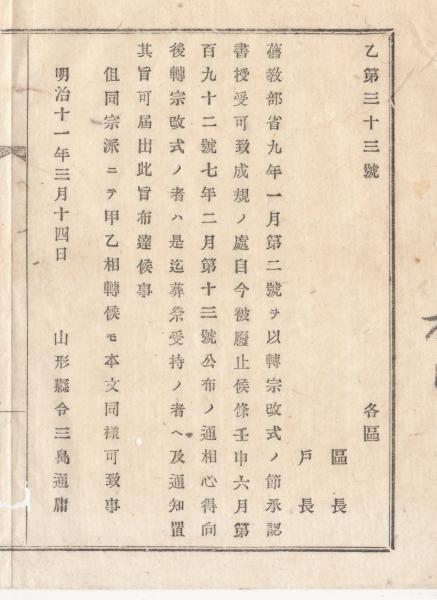 乙第三十三號
各區
區長
戸長
舊敎部省九年一月第二號ヲ以轉宗改式ノ節承認
書授受可致成規ノ處自今被廢止候條壬申六月第
百九十二號七年二月第十三號公布ノ通相心得向
後轉宗改式ノ者ハ是迄葬祭受持ノ者ヘ及通知置
其旨可屆出此旨布達候事
但同宗派ニテ甲乙相轉候モ本文同樣可致事
明治十一年三月十四日
山形縣令三島通庸